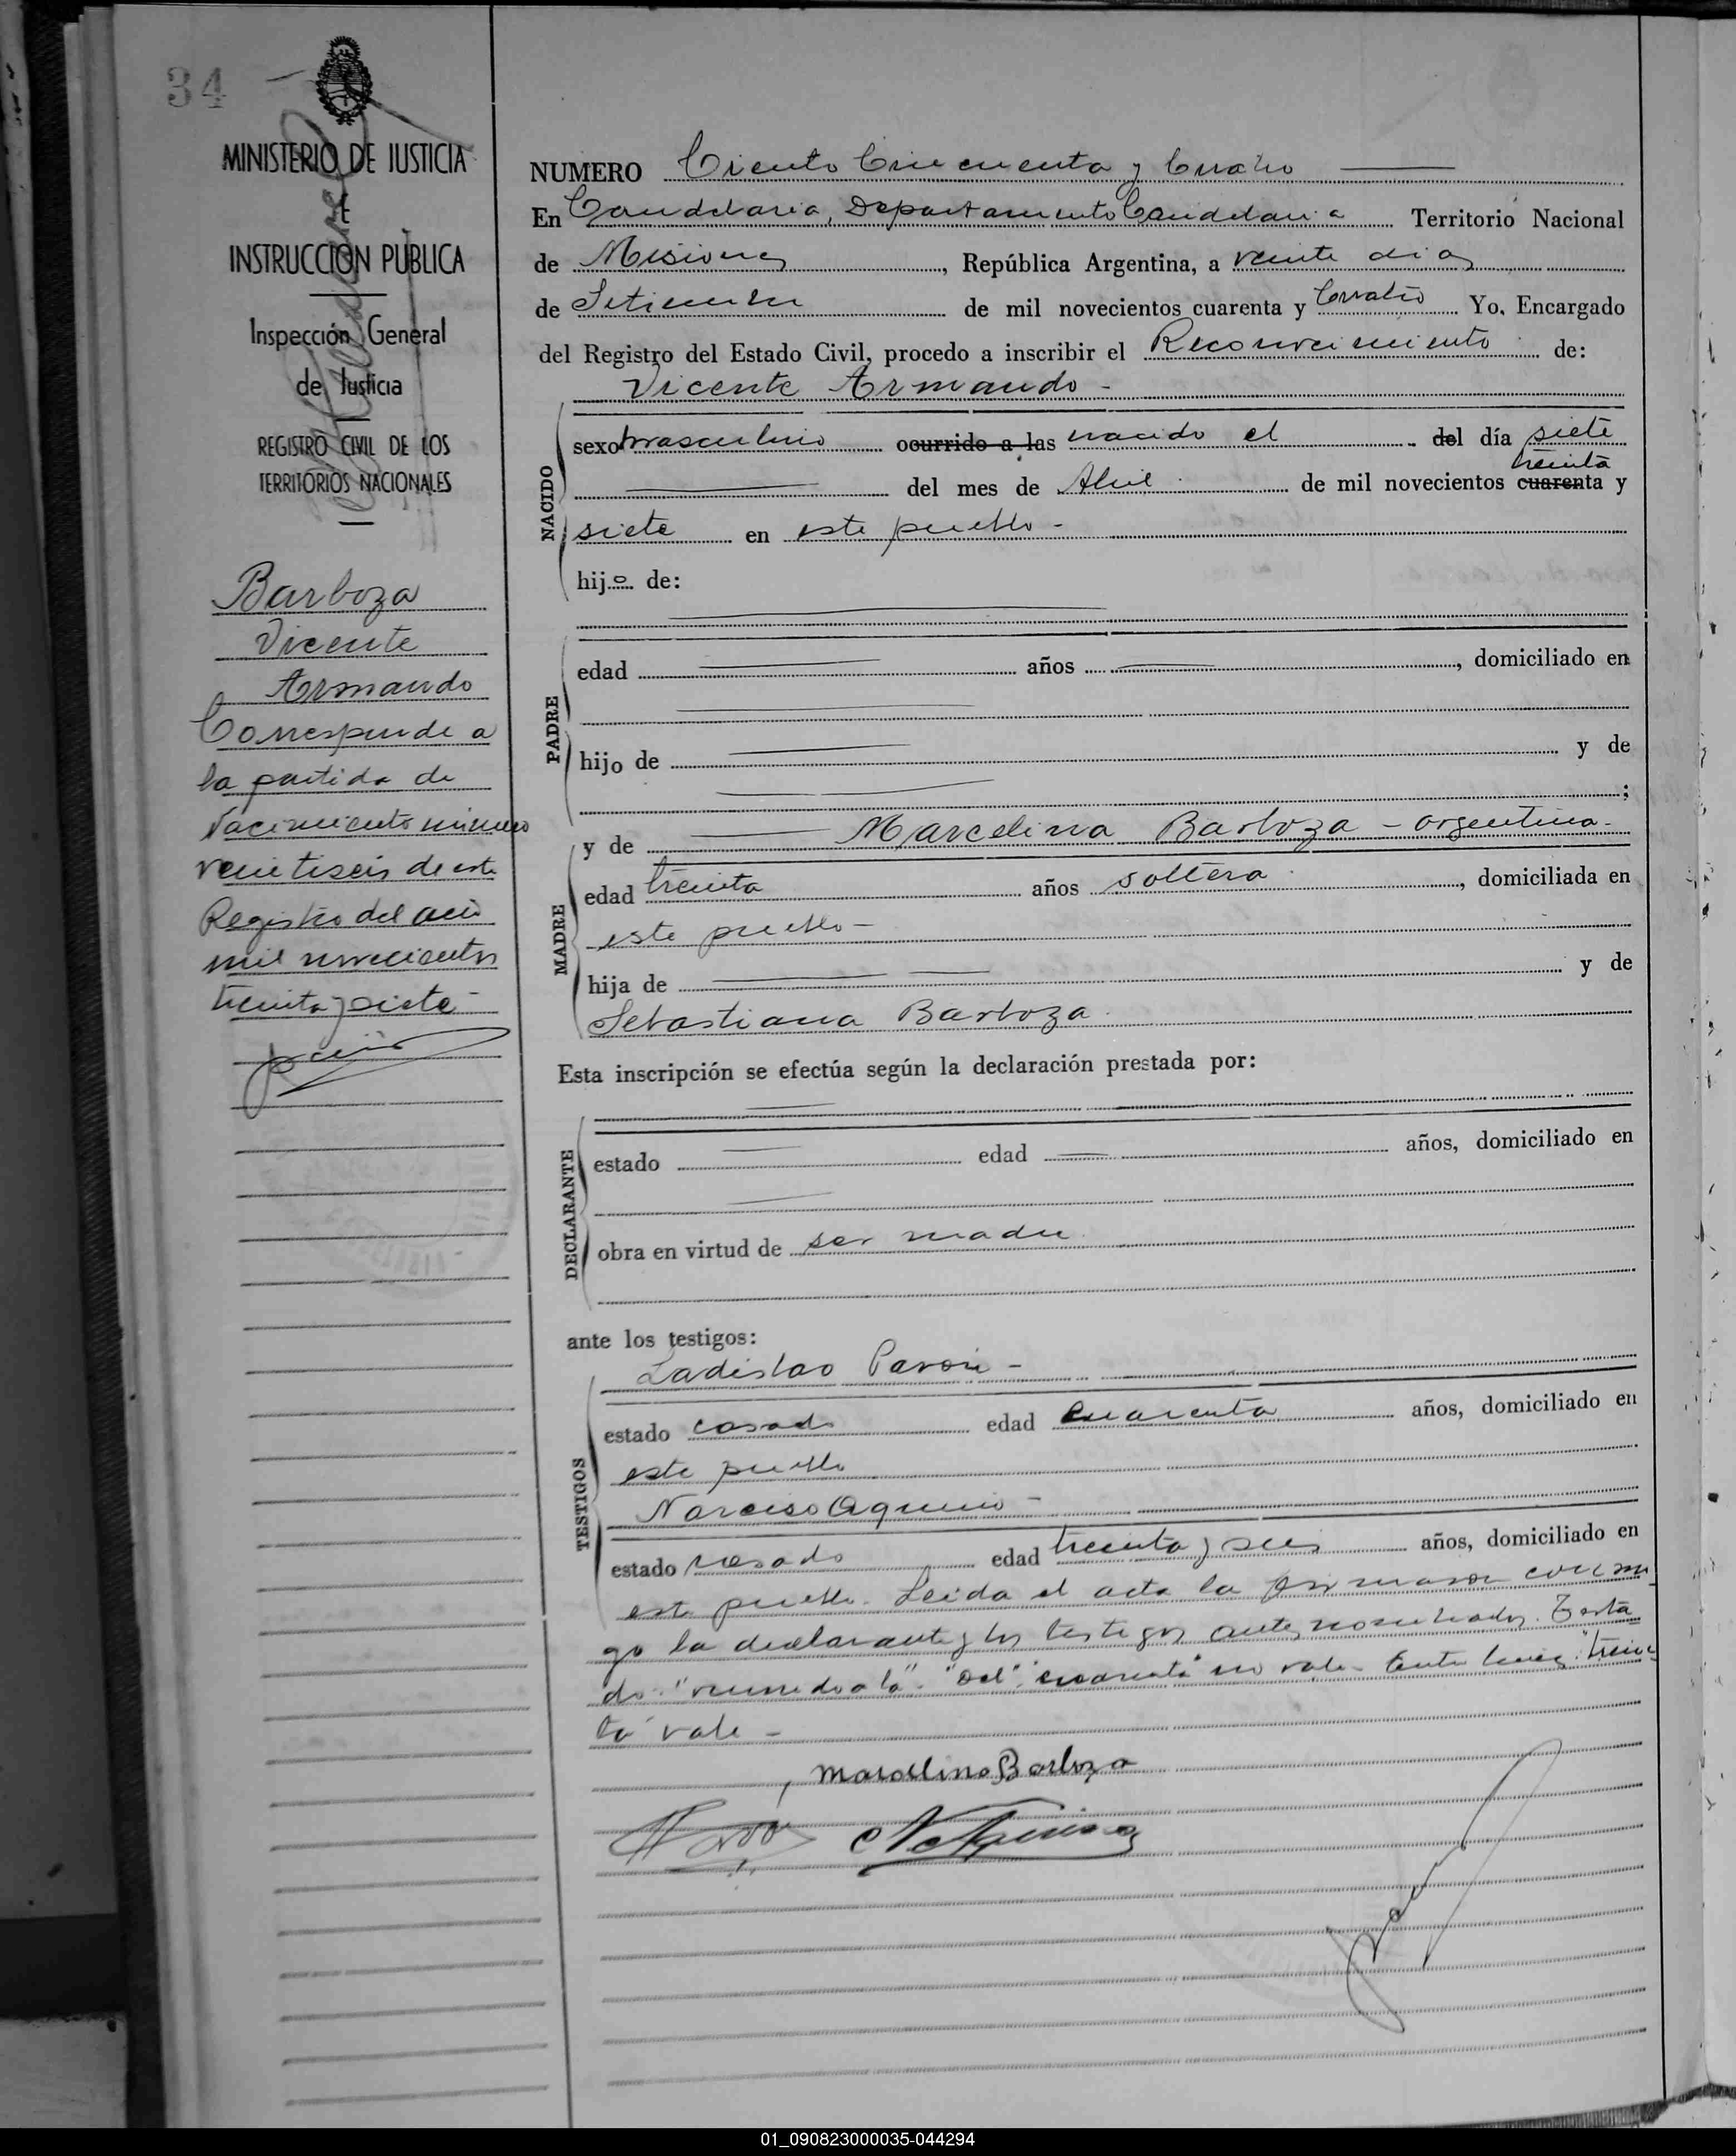 34
MINISTERIO DE JUSTICIA
E
INSTRUCCION PÚBLICA
Inspección General
de Justicia
REGISTRO CIVIL DE LOS
TERRITORIOS NACIONALES
Barboza
Vicente
Armando
Corresponde a
la partida de
Nacimiento número
veintiseis de este
Registro del año
mil novecientos
treinta y siete -
NUMERO Ciento Cincuenta y Cuatro
En Candelaria, Departamento Candelaria Territorio Nacional
de Misiones, República Argentina, a veinte dias
de Setiembre de mil novecientos cuarenta y Cuatro Yo, Encargado
del Registro del Estado Civil, procedo a inscribir el Reconocimiento de:
Vicente Armando -
NACIDO
sexo masculino ocurrido a las nacido el del día siete
treinta
del mes de Abril de mil novecientos cuarenta y
siete en este pueblo -
hijo de:
PADRE
edad años , domiciliado en
hijo de y de
;
y de Marcelina Barboza - argentina -
MADRE
edad treinta años soltera , domiciliada en
este pueblo -
hija de y de
Sebastiana Barboza
Esta inscripción se efectúa según la declaración prestada por:
DECLARANTE
estado edad años, domiciliado en
obra en virtud de ser madre
ante los testigos:
Ladislao Pavon -
TESTIGOS
estado casado edad cuarenta años, domiciliado en
este pueblo
Narciso Aquino -
estado casado edad treinta y seis años, domiciliado en
este pueblo. Leida el acta la firmaron conmi
go la declarante y los testigos antes nombrados. Testa
do: "ocurrido a la". "del". "cuarenta" no vale - Entre lineas: "trein
ta" vale -
Marcelina Barboza
N Aquino
01_090823000035-044294